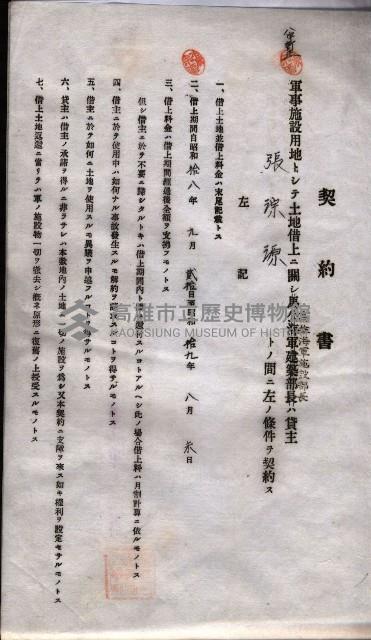 契約書
軍事施設用地トシテ土地借上ニ關シ馬公海軍建築部長ハ貸主
海軍施設部長
張琮源
トノ間ニ左ノ條件ヲ契約ス
左記
一、借上土地並借上料金ハ末尾記載トス
二、借上期間自昭和拾八年九月貳拾日至昭和拾九年八月末日
三、借上料金ハ借上期間經過後全額ヲ支拂フモノトス
但シ借主ニ於テ不要ニ歸シタルトキハ借上期間內ト雖返還スルコトアルヘシ此ノ場合借上料ハ月割計算ニ依ルモノトス
四、借主ニ於テ使用中ハ如何ナル事故發生スルモ解約ヲ請求スルコトヲ得サルモノトス
五、借主ニ於テ如何ニ土地ヲ使用スルモ異議ヲ申述フルコトヲ得サルモノトス
六、貸主ハ借主ノ承諾ヲ得ルニ非ラサレハ本敷地內ノ土地ニ一切ノ施設ヲ爲シ又本契約ニ支障ヲ來ス如キ權利ヲ設定セサルモノトス
七、借上土地返還ニ當リテハ軍ノ施設物一切ヲ撤去シ概ネ原形ニ復舊ノ上授受スルモノトス
高雄市立歷史博物館
KAOHSIUNG MUSEUM OF HISTORY